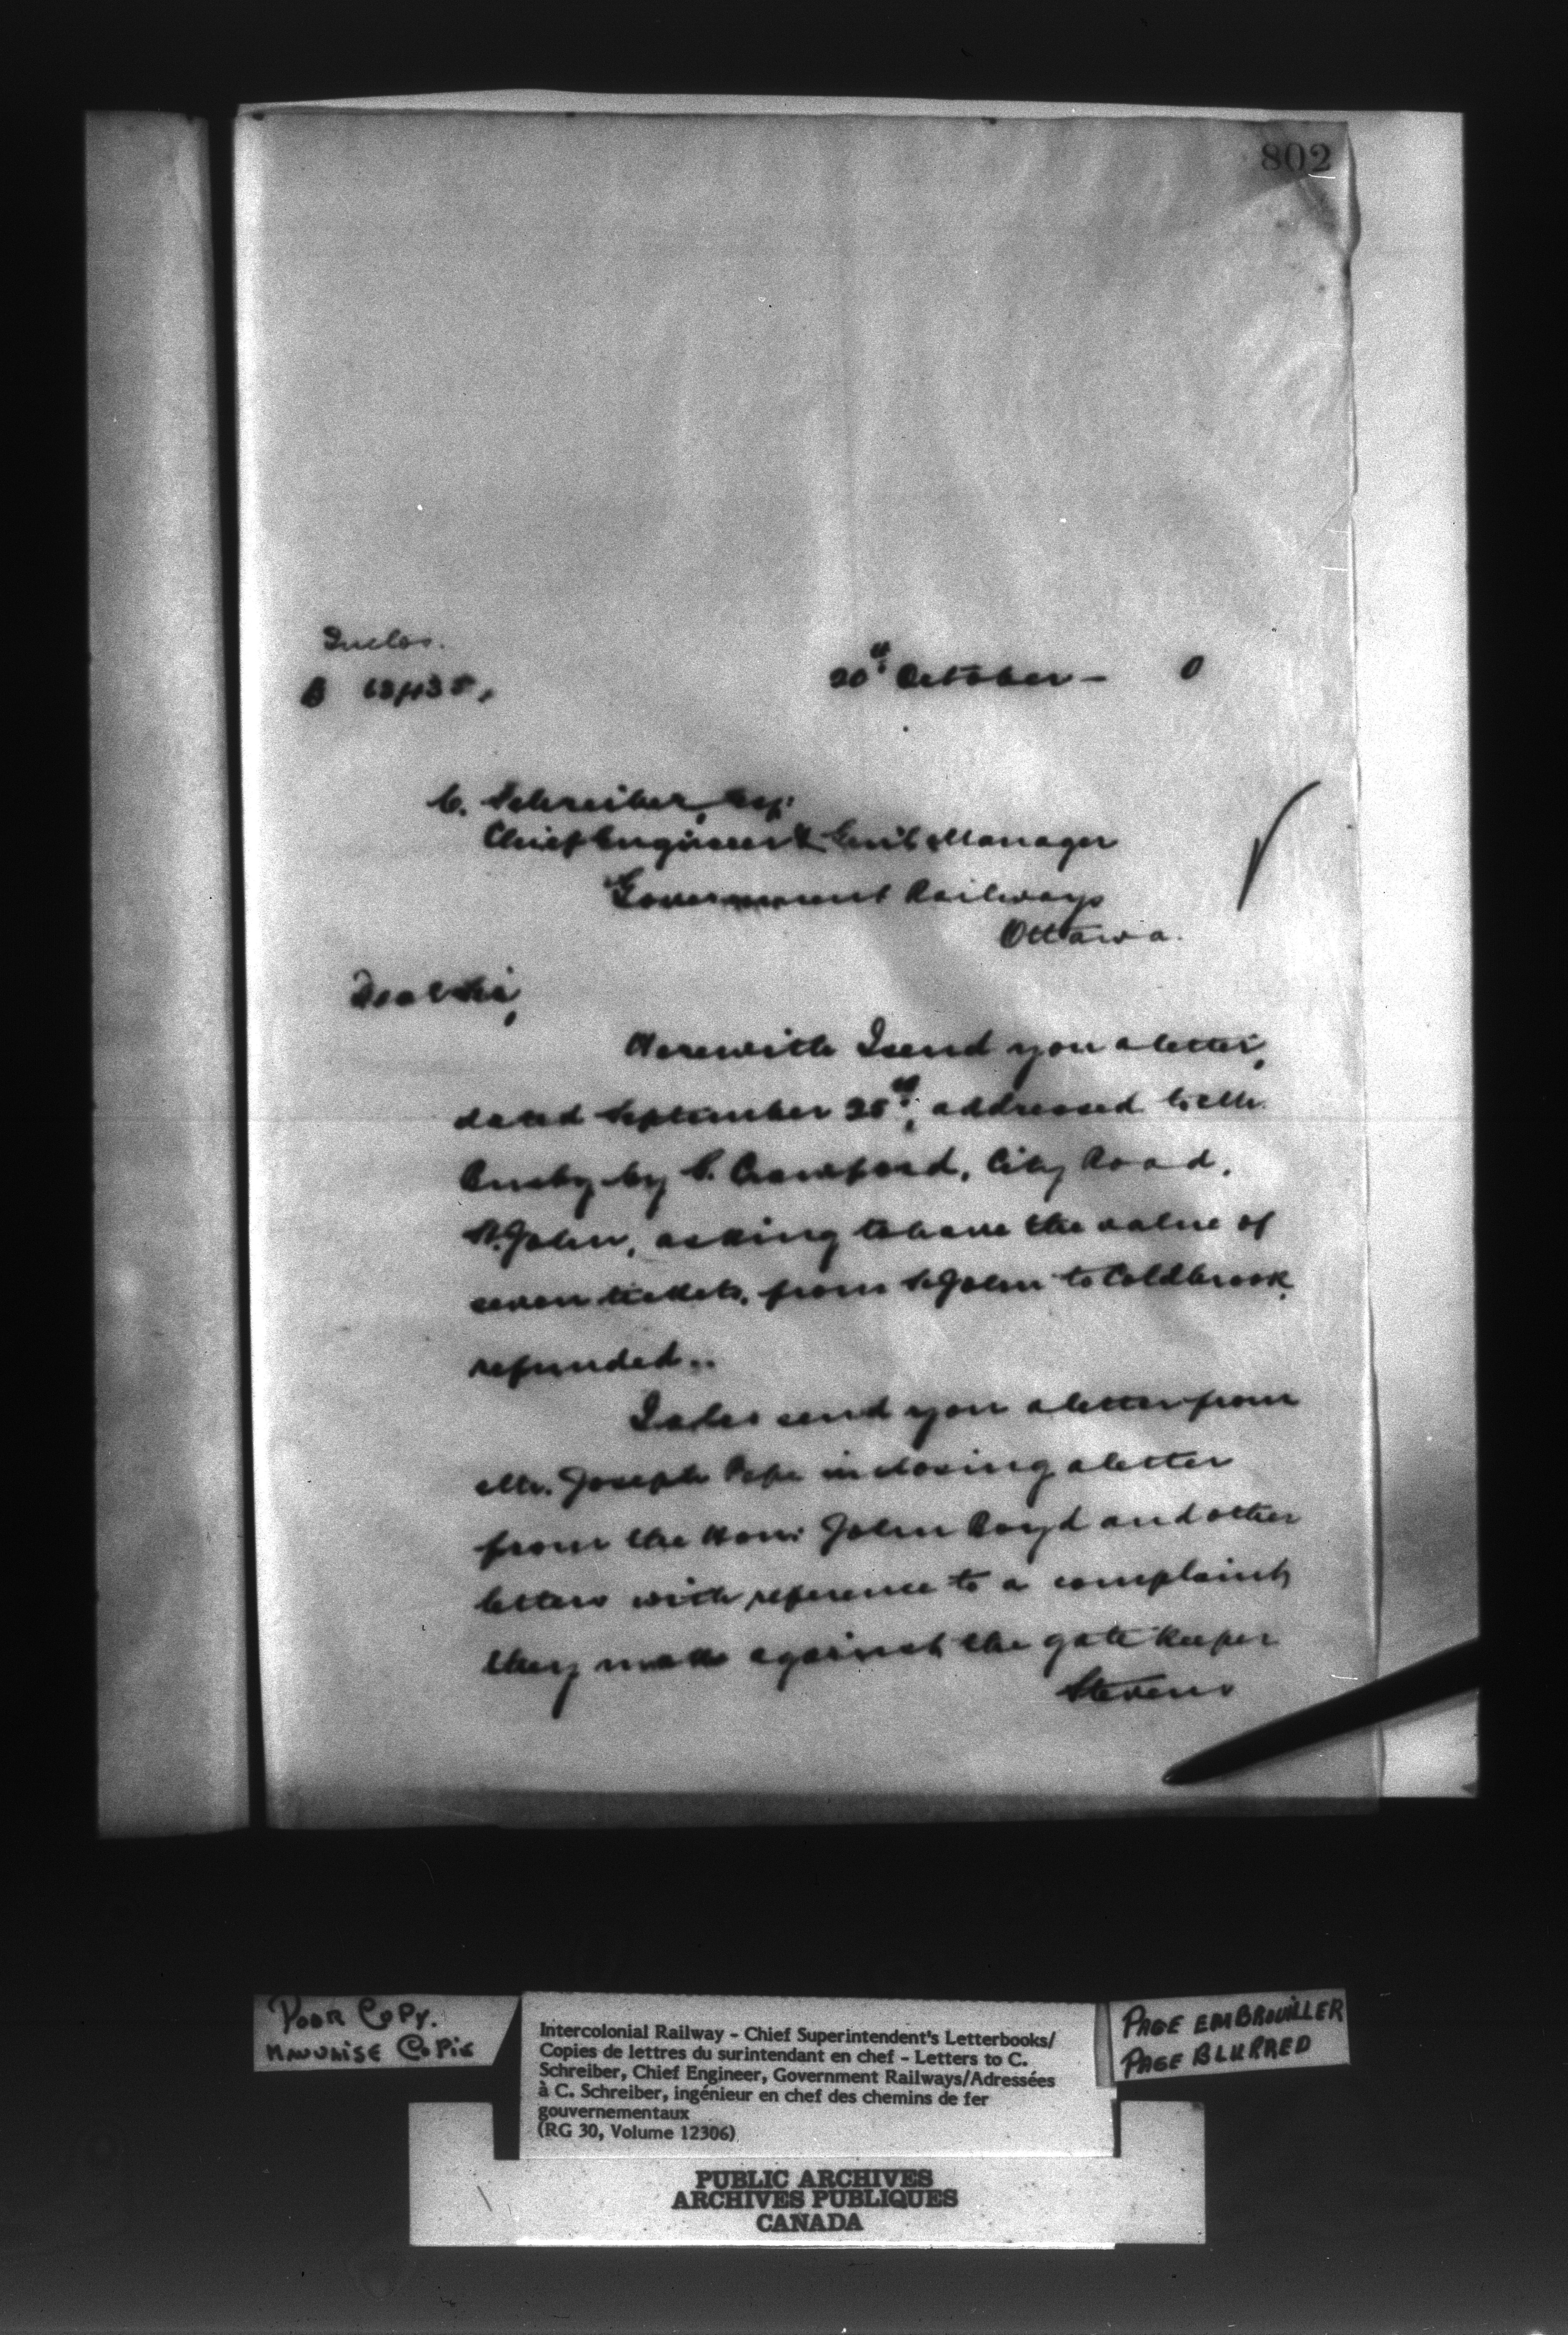 802
Inclos.
20th October — 0
C. Schreiber, Esq:
Chief Engineer & Genl Manager
Government Railways
Ottawa.
Dear Sir,
Herewith I send you a letter,
dated September 25th, addressed to Mr.
Busby by C. Crawford, City Road,
St. John, asking to have the value of
seven tickets, from St John to Coldbrook,
refunded..
I also send you a letter from
Mr. Joseph Pope inclosing a letter
from the Hon: John Boyd and other
letters with reference to a complaint
they make against the gate keeper
Stevens
POOR COPY.
MAUVAISE COPIE
Intercolonial Railway - Chief Superintendent's Letterbooks/
Copies de lettres du surintendant en chef - Letters to C.
Schreiber, Chief Engineer, Government Railways/Adressées
à C. Schreiber, ingénieur en chef des chemins de fer
gouvernementaux
(RG 30, Volume 12306)
PAGE EMBROUILLER
PAGE BLURRED
PUBLIC ARCHIVES
ARCHIVES PUBLIQUES
CANADA